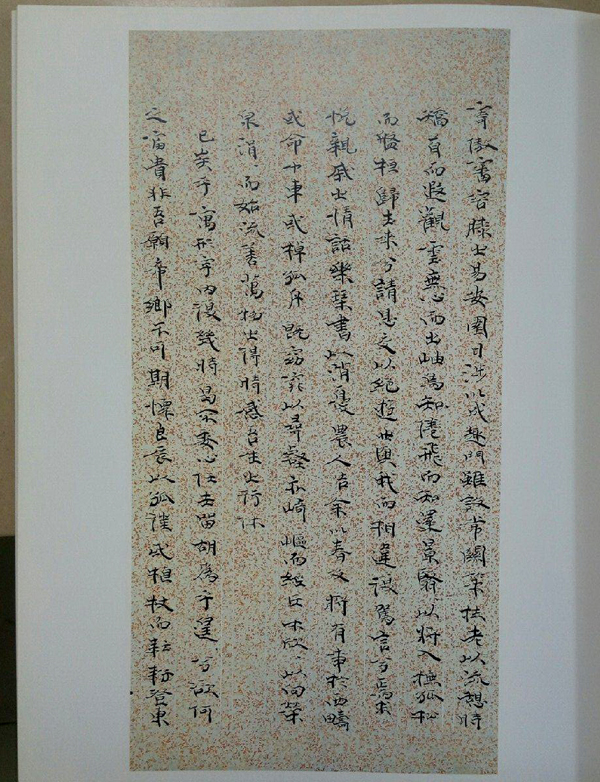 寄傲審容膝之易安園日涉以成趣門雖設常關策扶老以流憩時
矯首而遐觀雲無心而出岫鳥知倦飛而知還景翳以將入撫孤松
而盤桓歸去來兮請息交以絕遊世與我而相違復駕言兮焉求
悅親戚之情話樂琴書以消憂農人告余以春及將有事於西疇
或命巾車或棹孤舟既窈窕以尋壑亦崎嶇而經丘木欣以向榮
泉涓而始流善萬物之得時感吾生之行休
已矣乎寓形宇內復幾時曷不委心任去留胡為乎遑兮欲何
之富貴非吾願帝鄉不可期懷良辰以孤往或植杖而耘耔登東